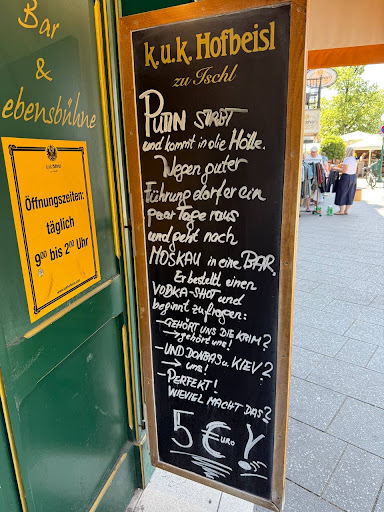 Bar
&
ebensbühne
Öffnungszeiten:
täglich
9⁰⁰ bis 2⁰⁰ Uhr
k.u.k. Hofbeisl
zu Ischl
PUTIN STIRBT
und kommt in die Hölle.
Wegen guter
Führung darf er ein
paar Tage raus
und geht nach
MOSKAU in eine BAR.
Er bestellt einen
VODKA-SHOT und
beginnt zu fragen:
- GEHÖRT UNS DIE KRIM?
→ gehört uns!
- UND DONBAS u. KIEV?
→ uns!
- PERFEKT!
WIEVIEL MACHT DAS?
5 € EURO